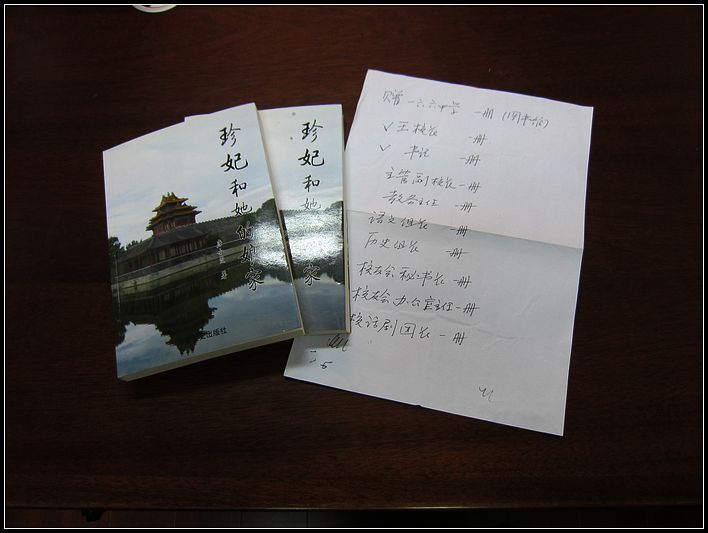 珍妃和她的娘家
著
出版社
珍妃和她
家
赠 一六六中学 一册 (图书馆)
✓ 王校长 一册
✓ 书记 一册
主管副校长 一册
教务主任 一册
语文组长 一册
历史组长 一册
校友会秘书长 一册
校友会办公室主任 一册
校话剧团长 一册